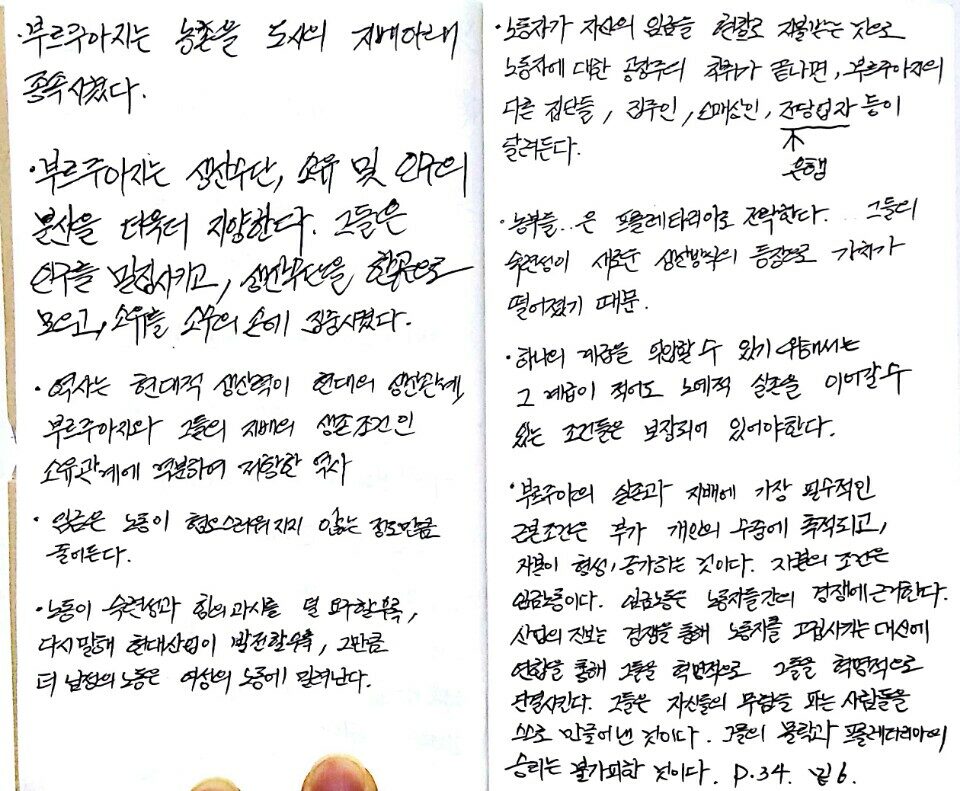 ·부르주아지는 농촌을 도시의 지배아래
종속시켰다.
·부르주아지는 생산수단, 소유 및 인구의
분산을 더욱더 지양한다. 그들은
인구를 밀집시키고, 생산수단을 한곳으로
모으고, 소유를 소수의 손에 집중시켰다.
·역사는 현대적 생산력이 현대의 생산관계,
부르주아지와 그들의 지배의 생존조건인
소유관계에 격분하여 저항한 역사
·임금은 노동이 혐오스러워지지 않는 정도만큼
줄어든다.
·노동이 숙련성과 힘의과시를 덜 요구할수록,
다시말해 현대산업이 발전할수록, 그만큼
더 남성의 노동은 여성의 노동에 밀려난다.
·노동자가 자신의 임금을 현찰로 지불받는 것으로
노동자에 대한 공장주의 착취가 끝나면, 부르주아지의
다른 집단들, 집주인, 소매상인, 전당업자 등이
달려든다.
은행
·농부들..은 프롤레타리아로 전락한다. ...그들의
숙련성이 새로운 생산방식의 등장으로 가치가
떨어졌기 때문.
·하나의 계급을 억압할 수 있기 위해서는
그 계급이 적어도 노예적 실존을 이어갈 수
있는 조건들은 보장되어 있어야한다.
·부르주아의 실존과 지배에 가장 필수적인
근본조건은 부가 개인의 수중에 축적되고,
자본이 형성, 증가하는 것이다. 자본의 조건은
임금노동이다. 임금노동은 노동자들간의 경쟁에 근거한다.
산업의 진보는 경쟁을 통해 노동자를 고립시키는 대신에
연합을 통해 그들을 혁명적으로 그들을 혁명적으로
단결시킨다. 그들은 자신들의 무덤을 파는 사람들을
스스로 만들어낸 것이다. 그들의 몰락과 프롤레타리아의
승리는 불가피한 것이다. P.34. 밑6.